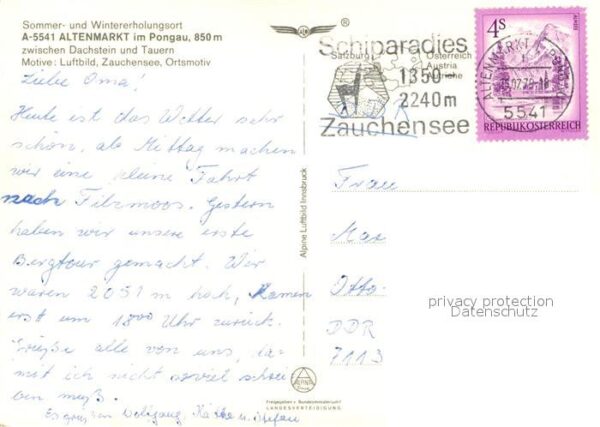 Sommer- und Wintererholungsort
A-5541 ALTENMARKT im Pongau, 850 m
zwischen Dachstein und Tauern
Motive: Luftbild, Zauchensee, Ortsmotiv
®
Schiparadies
Salzburg
Österreich
Austria
Autriche
1350-
2240m
Zauchensee
4S
ALTENMARKT
5541
REPUBLIK ÖSTERREICH
Liebe Oma!
Heute ist das Wetter sehr
schön, ab Mittag machen
wir eine kleine Fahrt
nach Filzmoos. Gestern
haben wir unsere erste
Bergtour gemacht. Wir
waren 2051 m hoch, kamen
erst um 1800 Uhr zurück.
Grüße alle von uns, da-
mit ich nicht soviel schrei
ben muß.
Es grüßen Wolfgang, Käthe u. Stefan
Alpine Luftbild Innsbruck
Frau
Max
Otto
DDR
7113
privacy protection
Datenschutz
Freigegeben v. Bundesministerium f.
LANDESVERTEIDIGUNG